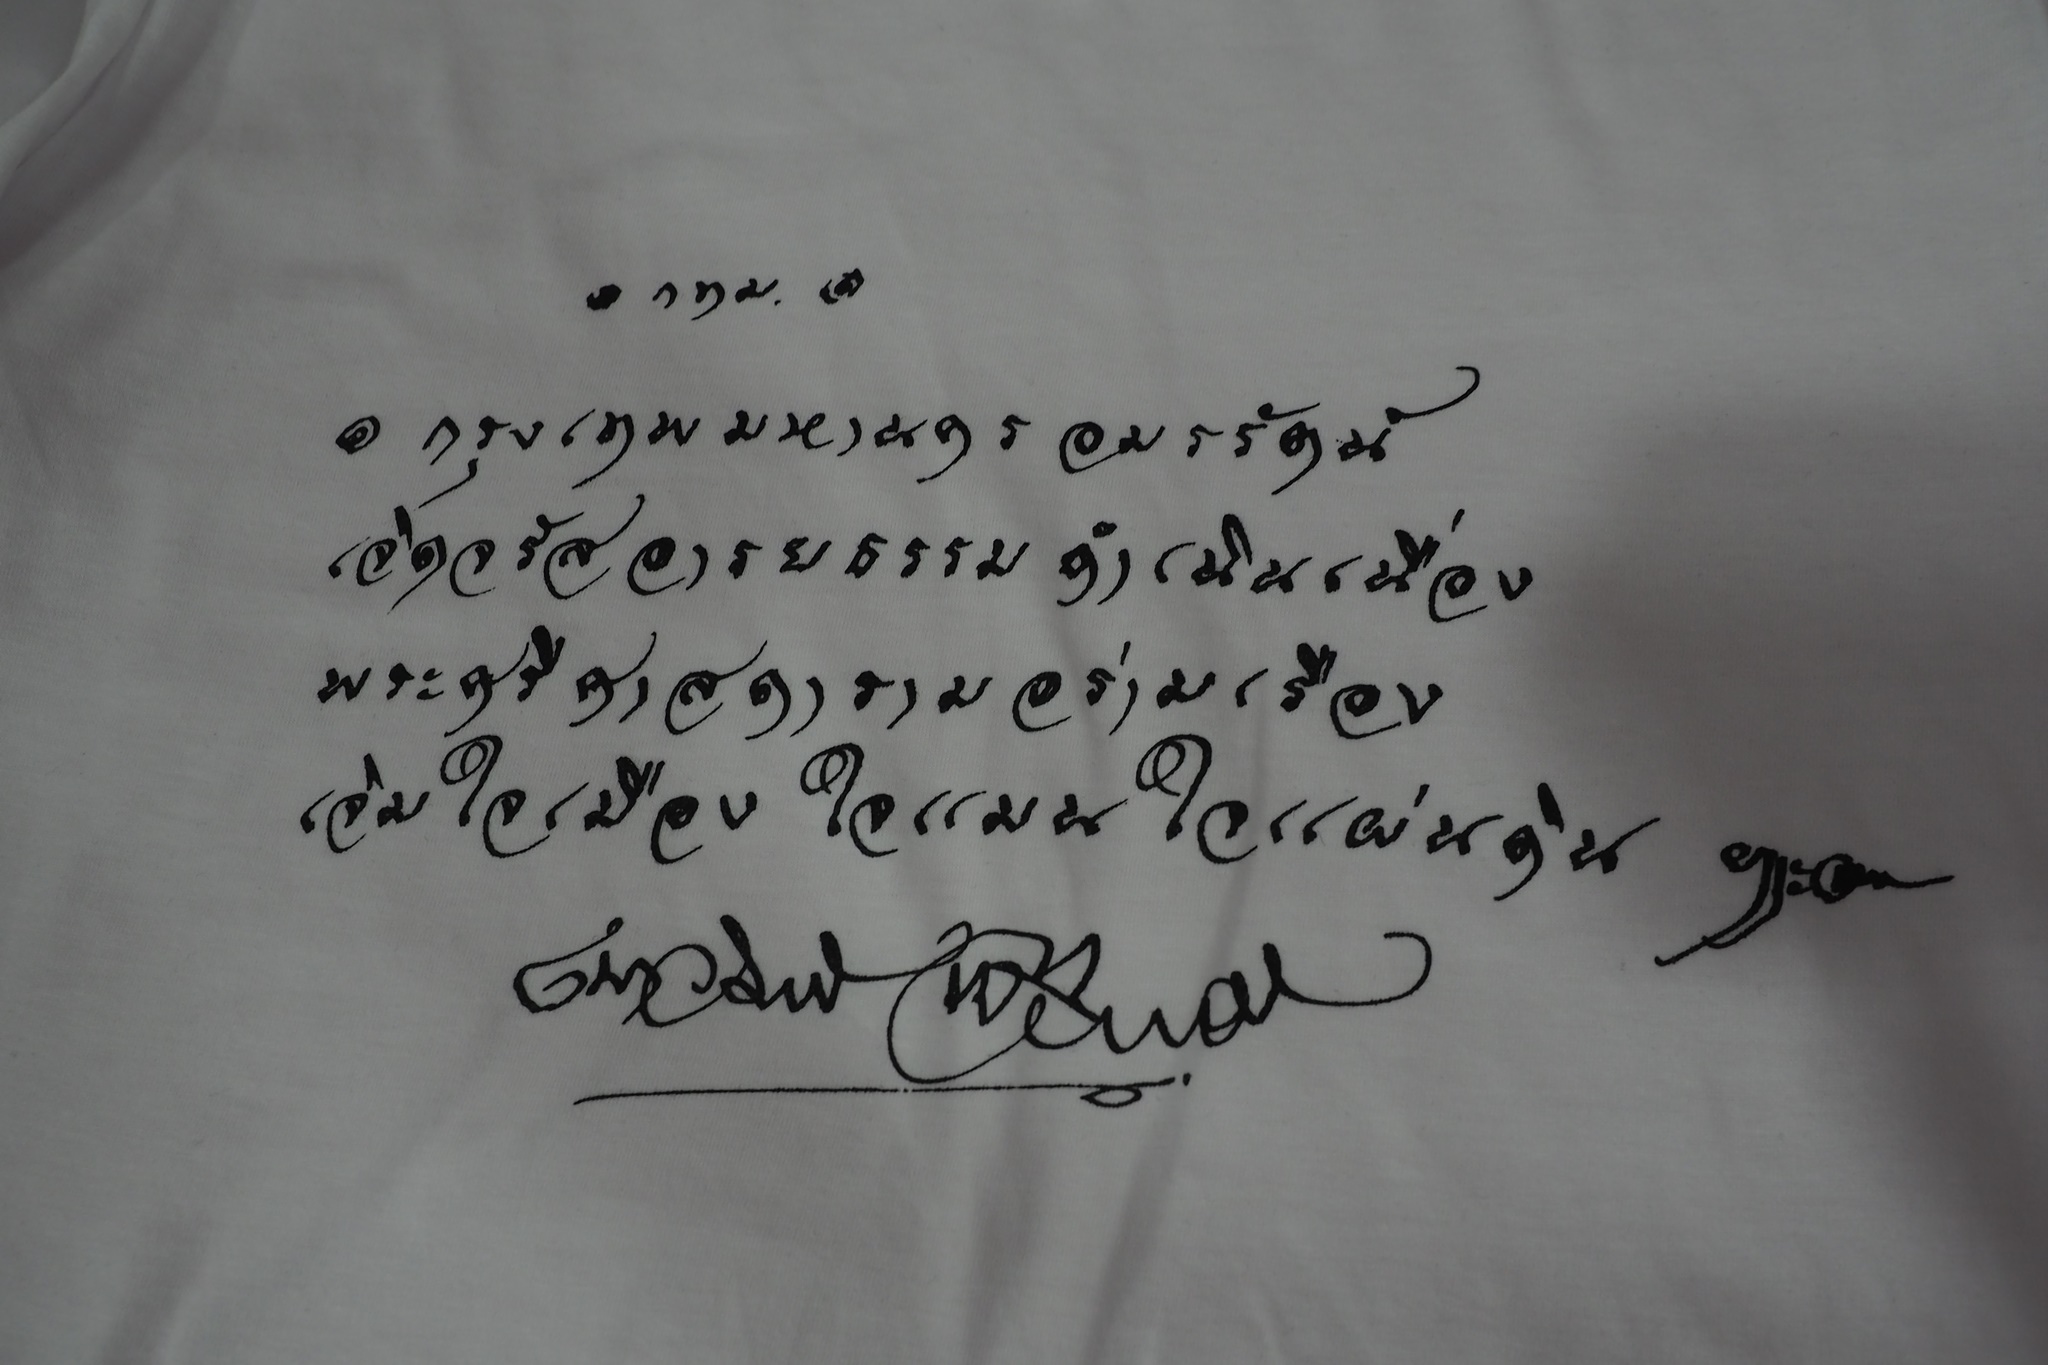 ๏ กทม. ๏
๏ กรุงเทพมหานคร อมรรัตน์
เจิดจรัสอารยธรรมดำเนินเนื่อง
พระศรีศาสดาราม อร่ามเรือง
เจิมใจเมือง ใจแมน ใจแผ่นดิน